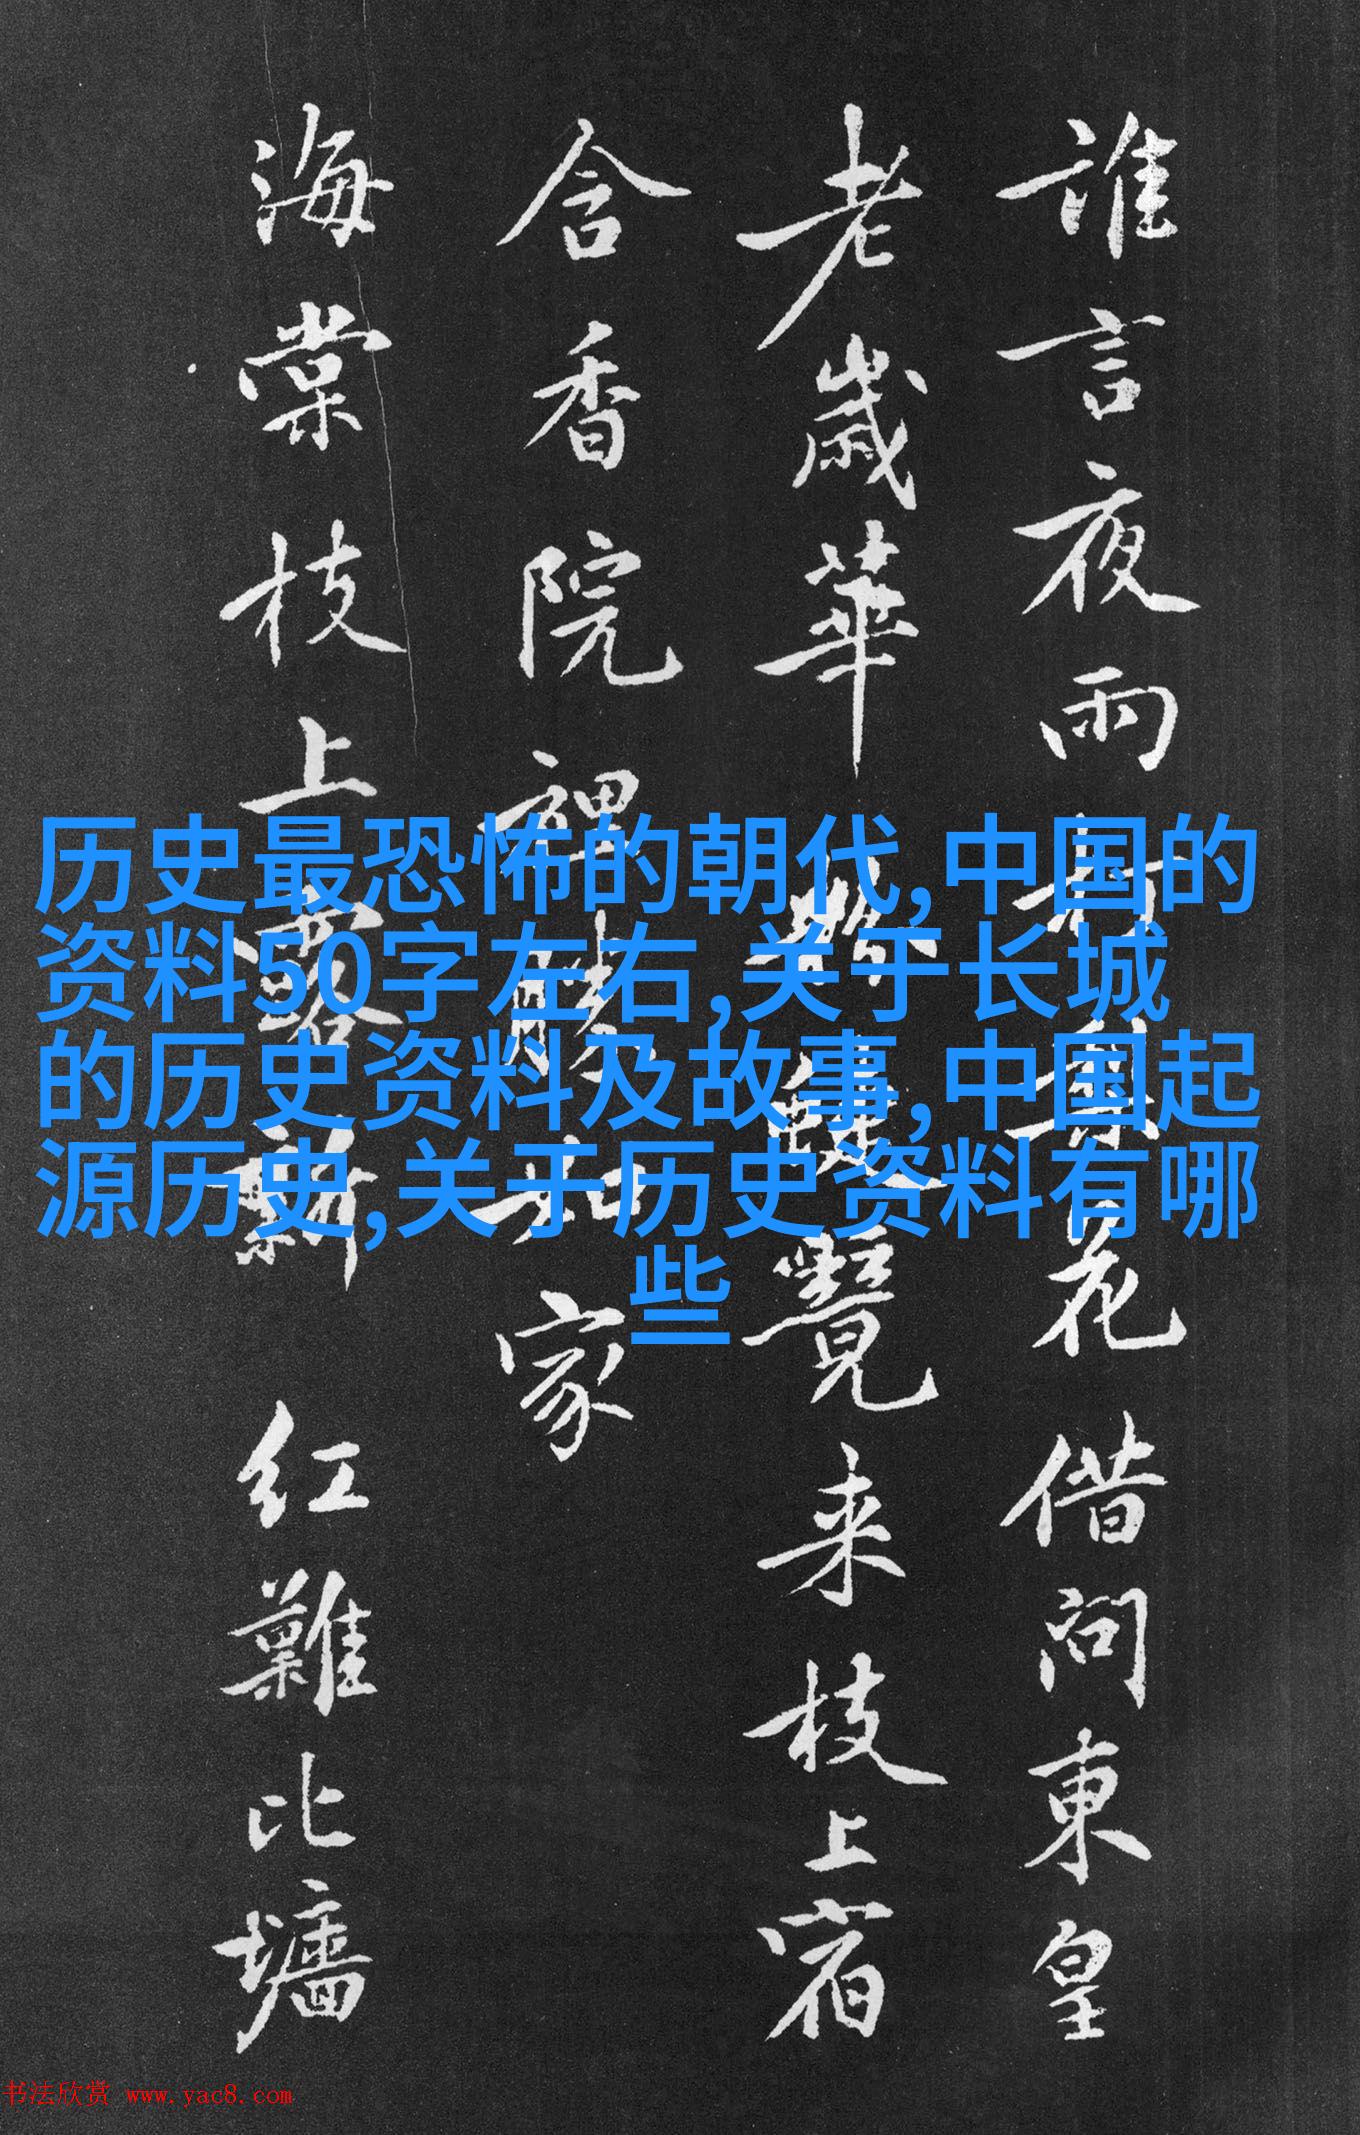 誰言夜雨打梨花借问東皇
老歲華覽来枝上宿
含香院裡勝家
海棠枝上露新红難比墙
历史最恐怖的朝代,中国的
资料50字左右,关于长城
的历史资料及故事,中国起
源历史,关于历史资料有哪
些
书法欣赏 www.yac8.com